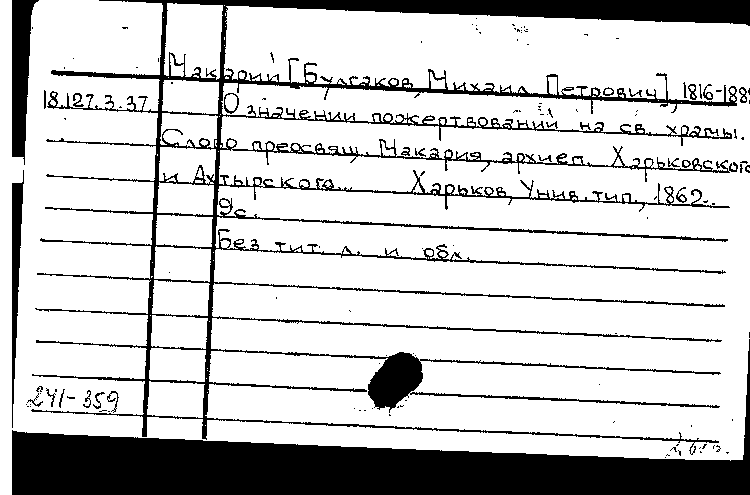 Макарий [Булгаков, Михаил Петрович], 1816-188
18.127.3.37. О значении пожертвований на св. храмы.
Слово преосвящ. Макария, архиеп. Харьковского
и Ахтырского... Харьков, Унив. тип., 1862.
9с.
Без тит. л. и обл.
241-359